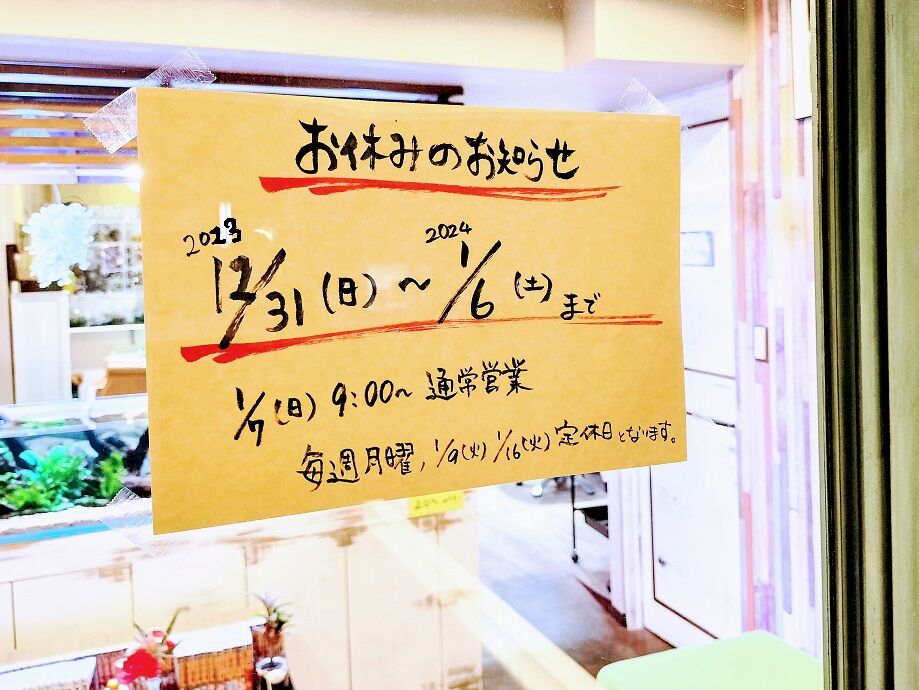 お休みのお知らせ
2023 2024
12/31(日)～1/6(土)まで
1/7(日) 9:00～ 通常営業
毎週月曜, 1/9(火) 1/16(火) 定休日となります。